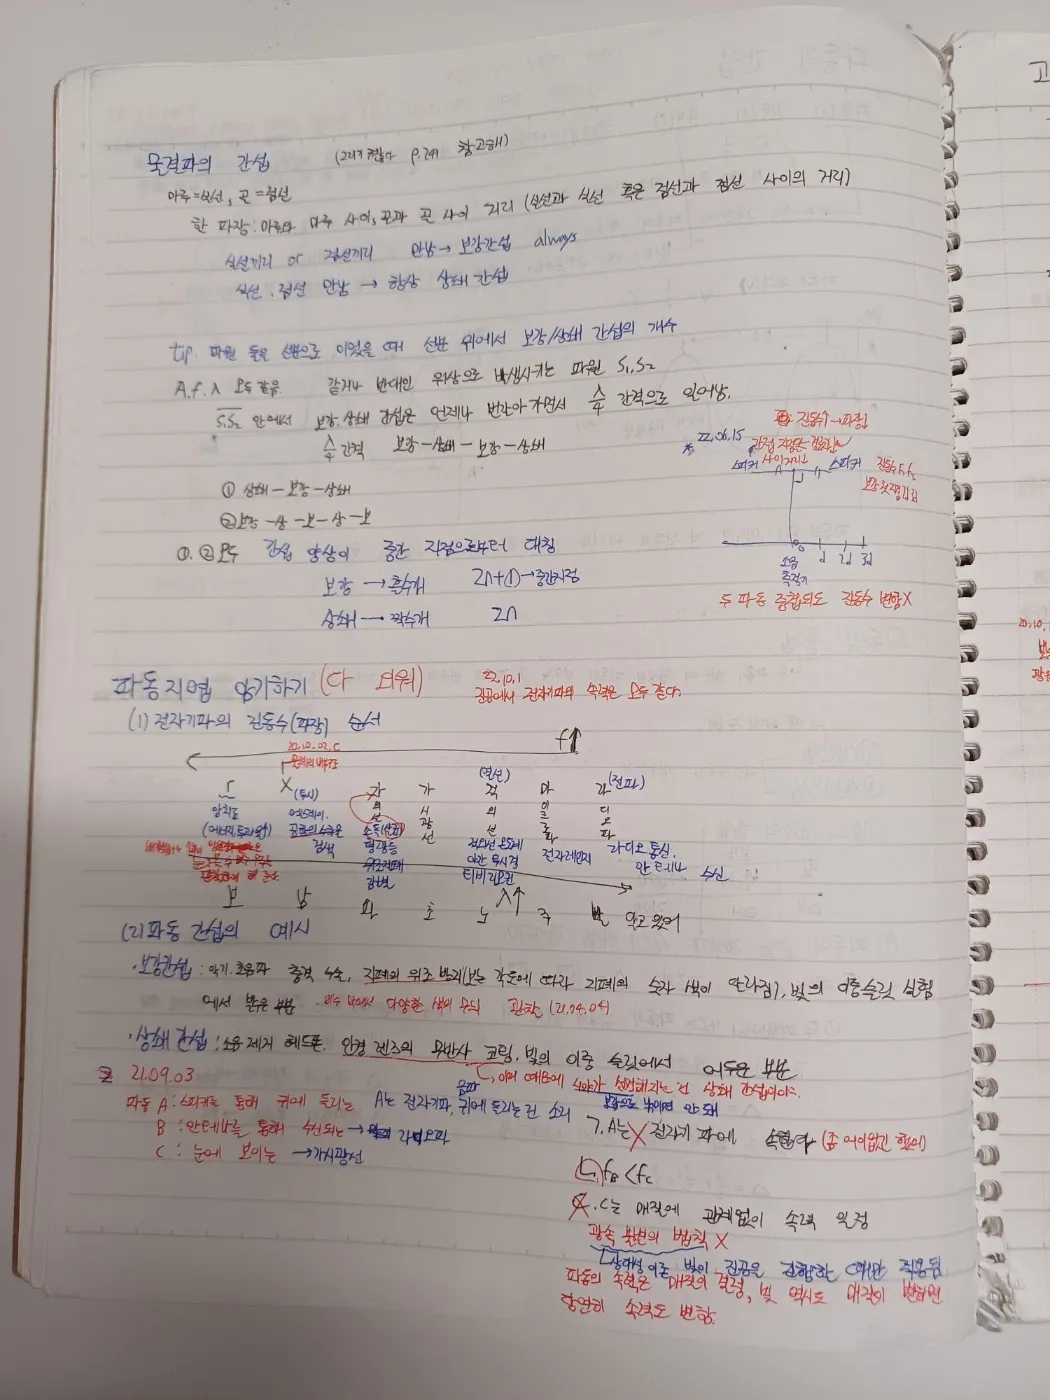 물결파의 간섭 (그리기 귀찮다 p.249 참고해)
마루=실선, 골=점선
한 파장: 마루와 마루 사이, 골과 골 사이 거리 (실선과 실선 혹은 점선과 점선 사이의 거리)
실선끼리 or 점선끼리 만남→ 보강간섭 always
실선, 점선 만남 → 항상 상쇄 간섭
tip. 파원 둘을 선분으로 이었을 때 선분 위에서 보강/상쇄 간섭의 개수
A.f.λ 모두 같음 같거나 반대인 위상으로 발생시키는 파원 S₁,S₂
S₁S₂ 안에서 보강, 상쇄 간섭은 언제나 번갈아 가면서 λ/4 간격으로 일어남.
λ/4 간격 보강-상쇄-보강-상쇄
① 상쇄-보강-상쇄
② 보강-상-보-상-보
①,② 모두 간섭 양상이 중간 지점으로부터 대칭
보강 → 홀수개 2n+① → 중간지점
상쇄 → 짝수개 2n
진동수↑→파장↓
* 22.06.15
스피커 스피커
진동수 f₁,f₂
소음
측정기
d 2d 3d
두 파동 중첩되도 진동수 변함X
파동지엽 암기하기 (다 외워)
22.10.1
진공에서 전자기파의 속력은 모두 같다.
(1) 전자기파의 진동수(파장) 순서
f↑
20.10.02.C
γ X 자외선 가시광선 적외선 마이크로파 라디오파
(투시) (열선) (전파)
암치료
엑스레이.
공항의 수화물
검색
소독(살균)
형광등
감별
적외선 온도계
야간 투시경
티비 리모컨
전자레인지
라디오 통신,
안테나 수신
λ↑
보 남 파 초 노 주 빨 알고 있어
(2) 파동 간섭의 예시
·보강간섭: 악기. 초음파 충격 쇄석, 지폐의 위조 방지(보는 각도에 따라 지폐의 숫자 색이 달라짐), 빛의 이중슬릿 실험
에서 밝은 부분 비누 막에서 다양한 색의 무늬 관찰 (21.04.04)
·상쇄 간섭: 소음 제거 헤드폰. 안경 렌즈의 무반사 코팅. 빛의 이중 슬릿에서 어두운 부분
→ 이에 예문에 시야가 선명해지는 건 상쇄 간섭이야.
보강으로 낚이면 안 돼
21.09.03
파동 A: 스피커를 통해 귀에 들리는 음파 A는 전자기파, 귀에 들리는건 소리
B: 안테나를 통해 수신되는 → 라디오파
C: 눈에 보이는 → 가시광선
ㄱ. A는 X 전자기파에 속한다 (좀 어이없긴 했어)
ㄴ. fB < fC
ㄷ. C는 매질에 관계없이 속력 일정
광속 불변의 법칙 X
상대성 이론 빛이 진공을 진행한 C에만 적용됨
파동의 속력은 매질이 결정, 빛 역시도 매질이 변하면
당연히 속력도 변함.